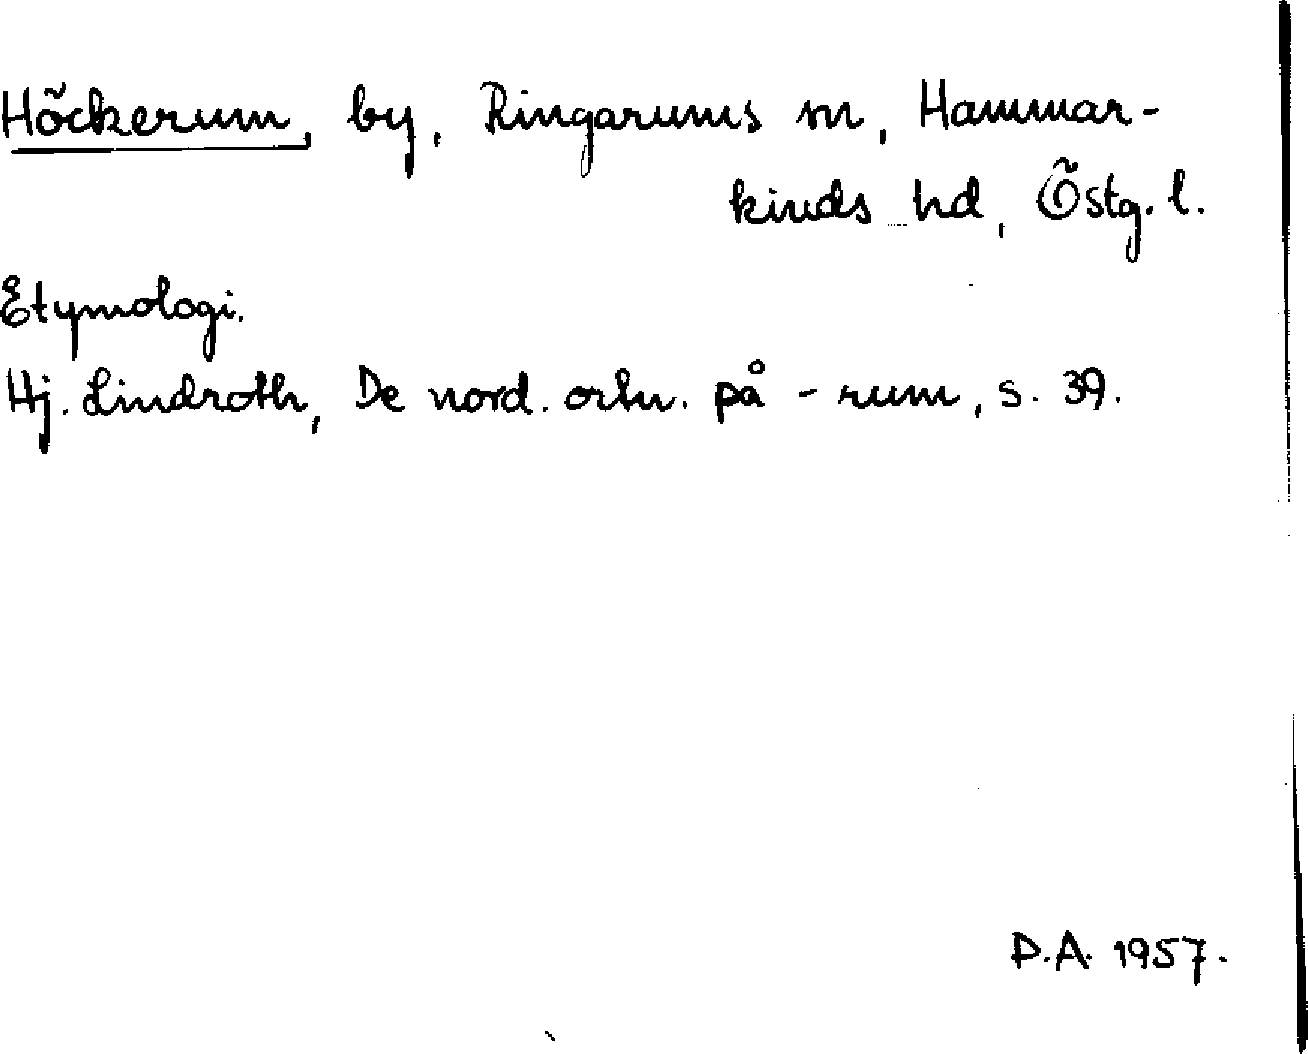 Höckerum, by, Ringarums sn, Hammar-
kinds hd, Östg. l.
Etymologi.
Hj. Lindroth, De nord. ortn. på -rum, s. 39.
D.A. 1957.